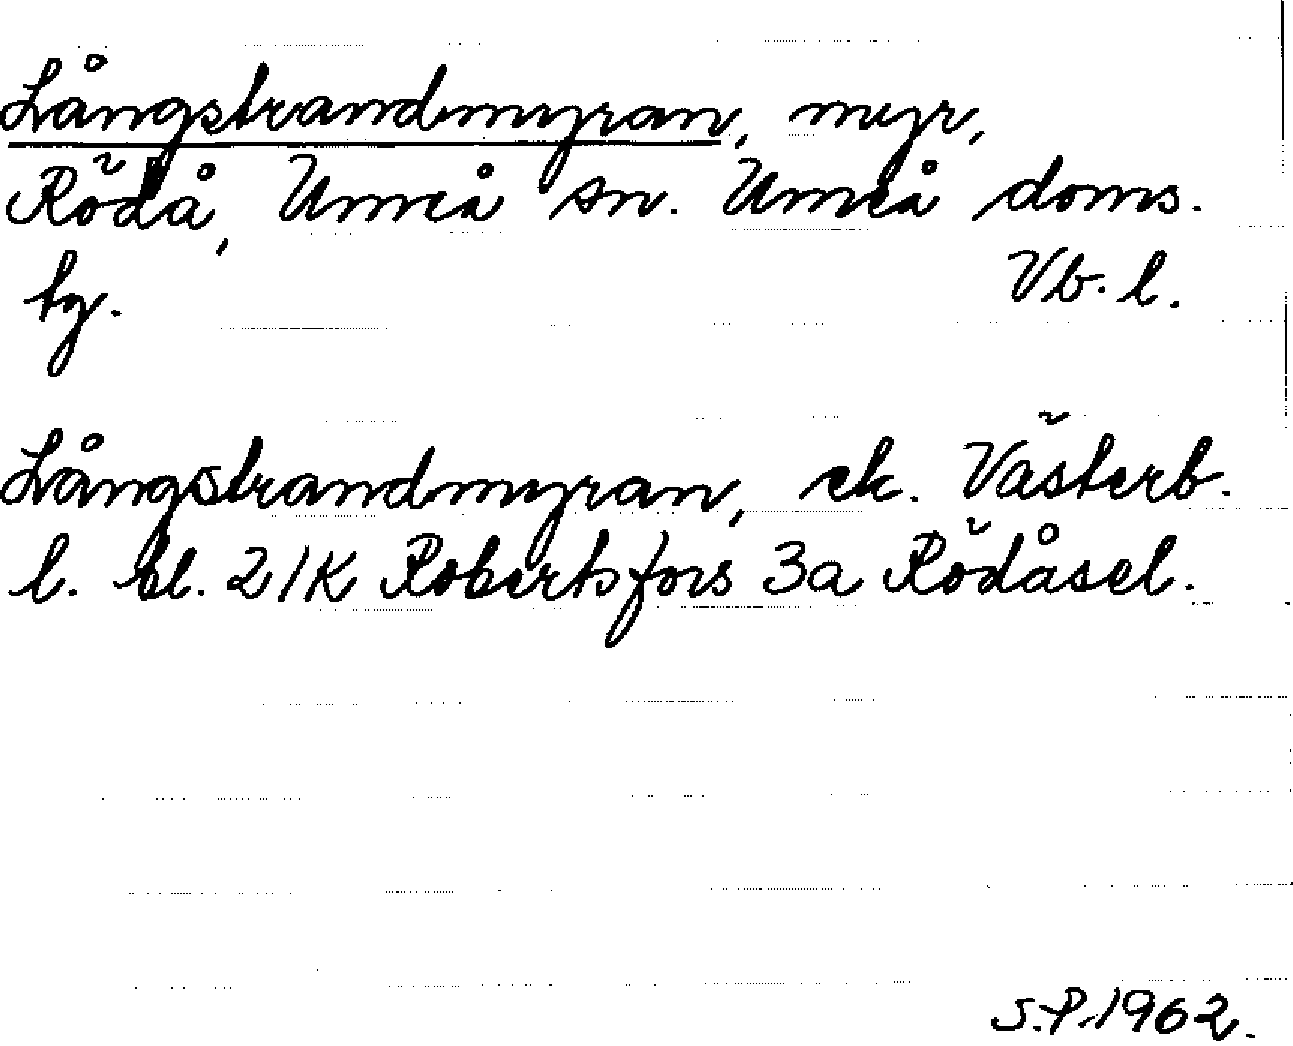 Långstrandmyran, myr,
Rödå, Umeå sn. Umeå doms.
tg. Vb. l.
Långstrandmyran, ek. Västerb.
l. bl. 21K Robertsfors 3a Rödåsel.
S.P. 1962.